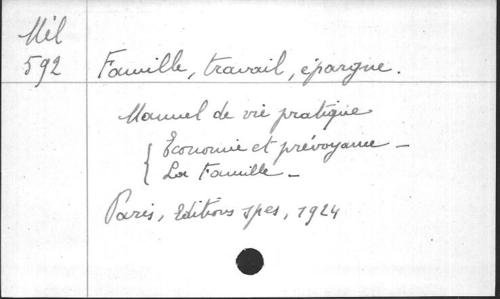 Mél
592
Famille, travail, épargne.
Manuel de vie pratique
{ Economie et prévoyance -
La Famille -
Paris, Editions Spes, 1924